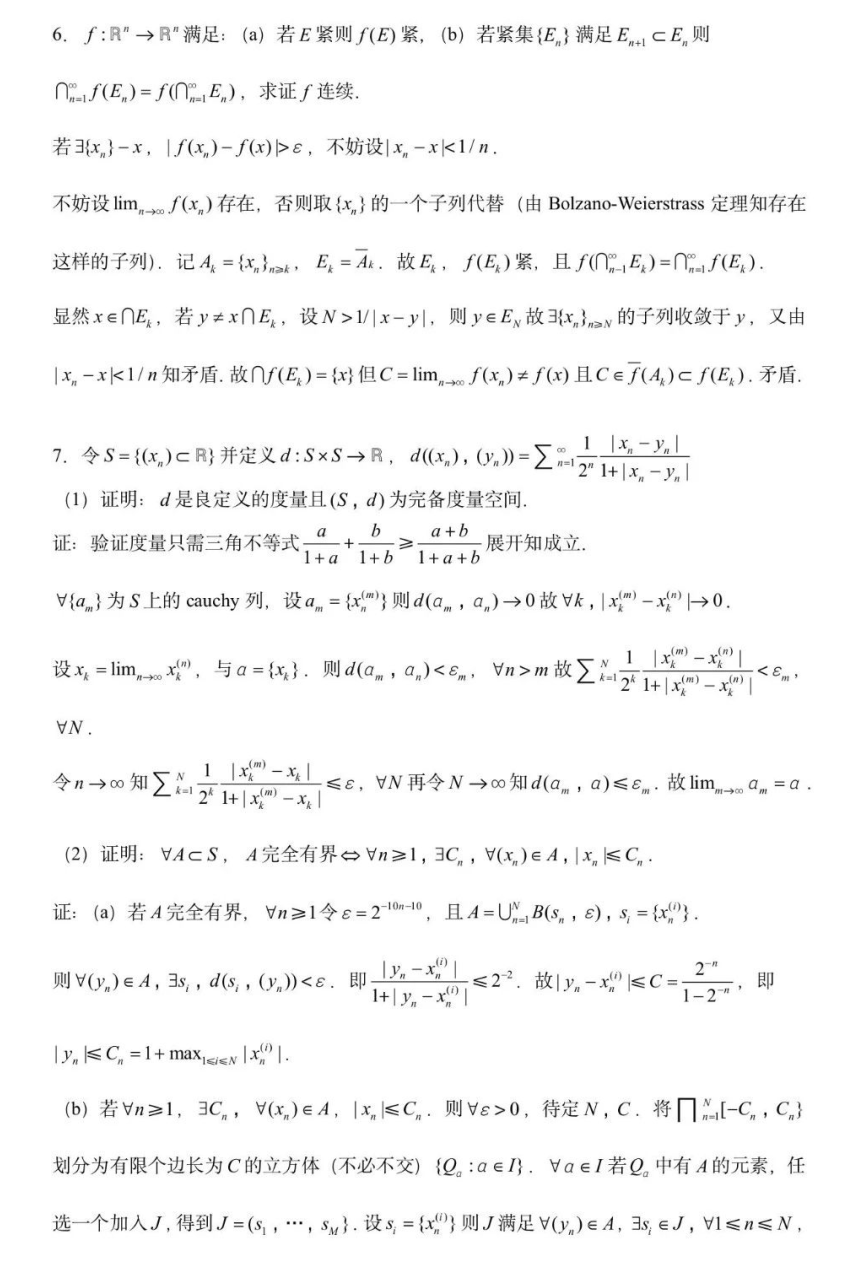 6. f:ℝⁿ→ℝⁿ满足:(a)若E紧则f(E)紧,(b)若紧集{Eₙ}满足Eₙ₊₁⊂Eₙ则
⋂ₙ₌₁^∞ f(Eₙ)=f(⋂ₙ₌₁^∞ Eₙ),求证f连续.
若∃{xₙ}−x,|f(xₙ)−f(x)|>ε,不妨设|xₙ−x|<1/n.
不妨设limₙ→∞ f(xₙ)存在,否则取{xₙ}的一个子列代替(由 Bolzano-Weierstrass 定理知存在
这样的子列).记Aₖ={xₙ}ₙ≥ₖ,Eₖ=\overline{A}ₖ.故Eₖ,f(Eₖ)紧,且f(⋂ₙ₋₁^∞ Eₖ)=⋂ₙ₌₁^∞ f(Eₖ).
显然x∈⋂Eₖ,若y≠x⋂Eₖ,设N>1/|x−y|,则y∈E_N故∃{xₙ}ₙ≥N的子列收敛于y,又由
|xₙ−x|<1/n知矛盾.故⋂f(Eₖ)={x}但C=limₙ→∞ f(xₙ)≠f(x)且C∈\overline{f}(Aₖ)⊂f(Eₖ).矛盾.
7. 令S={(xₙ)⊂ℝ}并定义d:S×S→ℝ,d((xₙ),(yₙ))=∑ₙ₌₁^∞ \frac{1}{2ⁿ}\frac{|xₙ−yₙ|}{1+|xₙ−yₙ|}
(1)证明:d是良定义的度量且(S,d)为完备度量空间.
证:验证度量只需三角不等式\frac{a}{1+a}+\frac{b}{1+b}≥\frac{a+b}{1+a+b}展开知成立.
∀{aₘ}为S上的 cauchy 列,设aₘ={xₙ^{(m)}}则d(aₘ,aₙ)→0故∀k,|xₖ^{(m)}−xₖ^{(n)}|→0.
设xₖ=limₙ→∞ xₖ^{(n)},与a={xₖ}.则d(aₘ,aₙ)<εₘ,∀n>m故∑ₖ₌₁^N \frac{1}{2ᵏ}\frac{|xₖ^{(m)}−xₖ^{(n)}|}{1+|xₖ^{(m)}−xₖ^{(n)}|}<εₘ,
∀N.
令n→∞知∑ₖ₌₁^N \frac{1}{2ᵏ}\frac{|xₖ^{(m)}−xₖ|}{1+|xₖ^{(m)}−xₖ|}≤ε,∀N再令N→∞知d(aₘ,a)≤εₘ.故limₘ→∞ aₘ=a.
(2)证明:∀A⊂S,A完全有界⇔∀n≥1,∃Cₙ,∀(xₙ)∈A,|xₙ|≤Cₙ.
证:(a)若A完全有界,∀n≥1令ε=2^{−10n−10},且A=⋃ₙ₌₁^N B(sₙ,ε),sᵢ={xₙ^{(i)}}.
则∀(yₙ)∈A,∃sᵢ,d(sᵢ,(yₙ))<ε.即\frac{|yₙ−xₙ^{(i)}|}{1+|yₙ−xₙ^{(i)}|}≤2^{−2}.故|yₙ−xₙ^{(i)}|≤C=\frac{2^{−n}}{1−2^{−n}},即
|yₙ|≤Cₙ=1+max_{1≤i≤N}|xₙ^{(i)}|.
(b)若∀n≥1,∃Cₙ,∀(xₙ)∈A,|xₙ|≤Cₙ.则∀ε>0,待定N,C.将∏ₙ₌₁^N[−Cₙ,Cₙ}
划分为有限个边长为C的立方体(不必不交){Qₐ:a∈I}.∀a∈I若Qₐ中有A的元素,任
选一个加入J,得到J=(s₁,⋯,s_M}.设sᵢ={xₙ^{(i)}}则J满足∀(yₙ)∈A,∃sᵢ∈J,∀1≤n≤N,